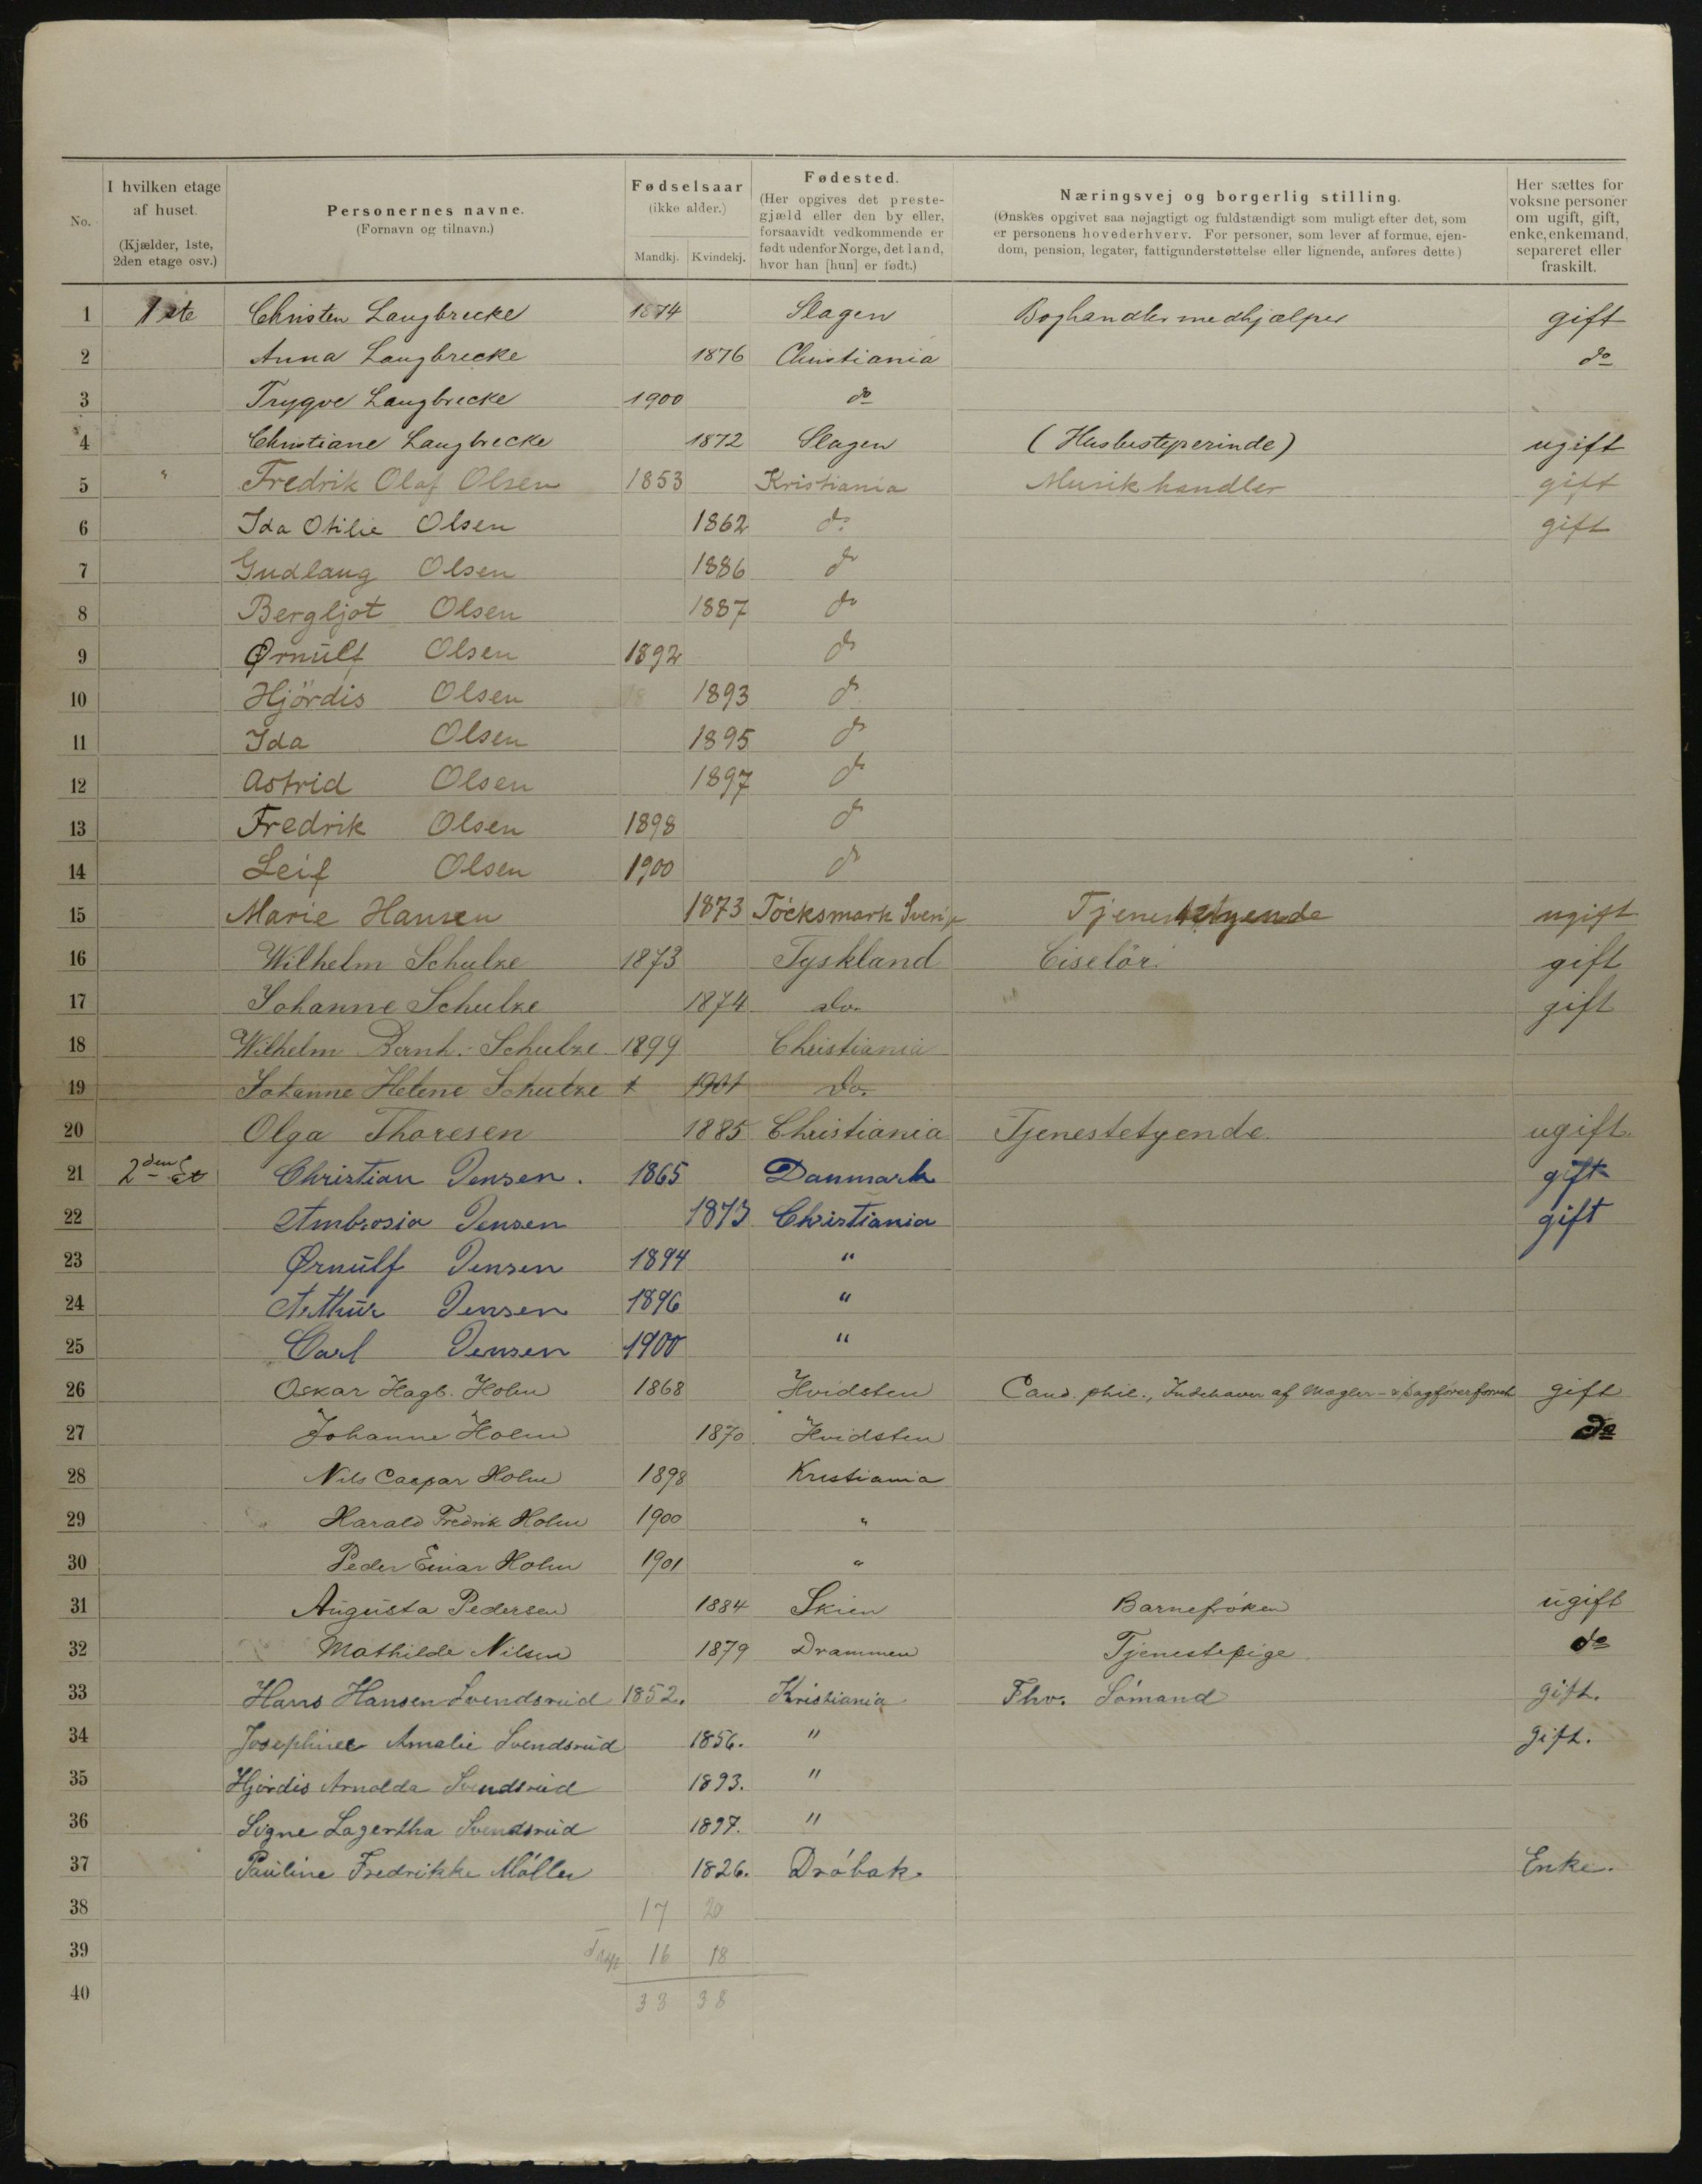 No. I hvilken etage af huset. (Kjælder, 1ste, 2den etage osv.) Personernes navne. (Fornavn og tilnavn.) Fødselsaar (ikke alder.) Mandkj. Kvindekj. Fødested. (Her opgives det prestegjæld eller den by eller, forsaavidt vedkommende er født udenfor Norge, det land, hvor han [hun] er født.) Næringsvej og borgerlig stilling. (Ønskes opgivet saa nøjagtigt og fuldstændigt som muligt efter det, som er personens hovederhverv. For personer, som lever af formue, ejendom, pension, legater, fattigunderstøttelse eller lignende, anføres dette) Her sættes for voksne personer om ugift, gift, enke, enkemand, separeret eller fraskilt.
1 1ste Christen Laugbrecke 1874 Slagen Boghandlermedhjælper gift
2 Anna Laugbrecke 1876 Christiania do
3 Trygve Laugbrecke 1900 do
4 Christiane Laugbrecke 1872 Slagen (Husbestyrerinde) ugift
5 " Fredrik Olaf Olsen 1853 Kristiania Musikhandler gift
6 Ida Otilie Olsen 1862 do gift
7 Gudlaug Olsen 1886 do
8 Bergljot Olsen 1887 do
9 Ørnulf Olsen 1892 do
10 Hjördis Olsen 18 1893 do
11 Ida Olsen 1895 do
12 Astrid Olsen 1897 do
13 Fredrik Olsen 1898 do
14 Leif Olsen 1900 do
15 Marie Hansen 1873 Töcksmark Sverige Tjenestetyende ugift
16 Wilhelm Schulze 1873 Tyskland Ciselör gift
17 Johanne Schulze 1874 do. gift
18 Wilhelm Bernh. Schulze 1899 Christiania
19 Johanne Helene Schulze 1901 Do.
20 Olga Thoresen 1885 Christiania Tjenestetyende ugift.
21 2den Et Christian Jensen. 1865 Danmark gift
22 Ambrosia Jensen 1873 Christiania gift
23 Ørnulf Jensen 1894 "
24 Arthur Jensen 1896 "
25 Carl Jensen 1900 "
26 Oskar Hagb. Holm 1868 Hvidsten Cand. phil., Indehaver af Magler- & sagførerforreh gift
27 Johanne Holm 1870 Hvidsten do
28 Nils Caspar Holm 1898 Kristiania
29 Harald Fredrik Holm 1900 "
30 Peder Einar Holm 1901 "
31 Augusta Pedersen 1884 Skien Barnefröken ugift
32 Mathilde Nilsen 1879 Drammen Tjenestepige do
33 Hans Hansen Svendsrud 1852. Kristiania Fhv. Sömand gift.
34 Josephine Amalie Svendsrud 1856. " gift.
35 Hjördis Arnolda Svendsrud 1893. "
36 Signe Lagertha Svendsrud 1897. "
37 Pauline Fredrikke Möller 1826. Dröbak. Enke.
38 17 20
39 16 18
40 33 38